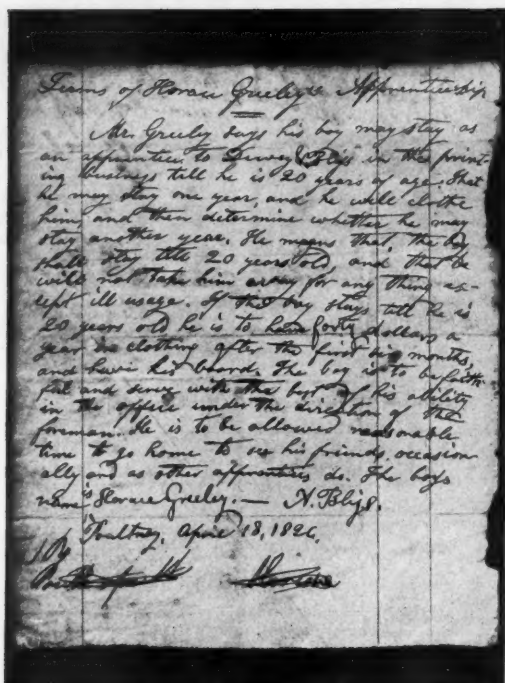 Terms of Horace Greeley's Apprenticeship
Mr. Greeley says his boy may stay as
an apprentice to Dewey & Bliss in the print-
ing business till he is 20 years of age. That
he may stay one year, and he will clothe
him and then determine whether he may
stay another year. He means that the boy
shall stay till 20 years old, and that he
will not take him away for any thing ex-
cept ill usage. If the boy stays till he is
20 years old he is to have forty dollars a
year in clothing after the first six months,
and have his board. The boy is to be faith-
ful and serve with the best of his ability
in the office under the direction of the
foreman. He is to be allowed reasonable
time to go home to see his friends, occasion
ally and as other apprentices do. The boys
name is Horace Greeley. — A. Bliss.
Poultney, April 18, 1826.